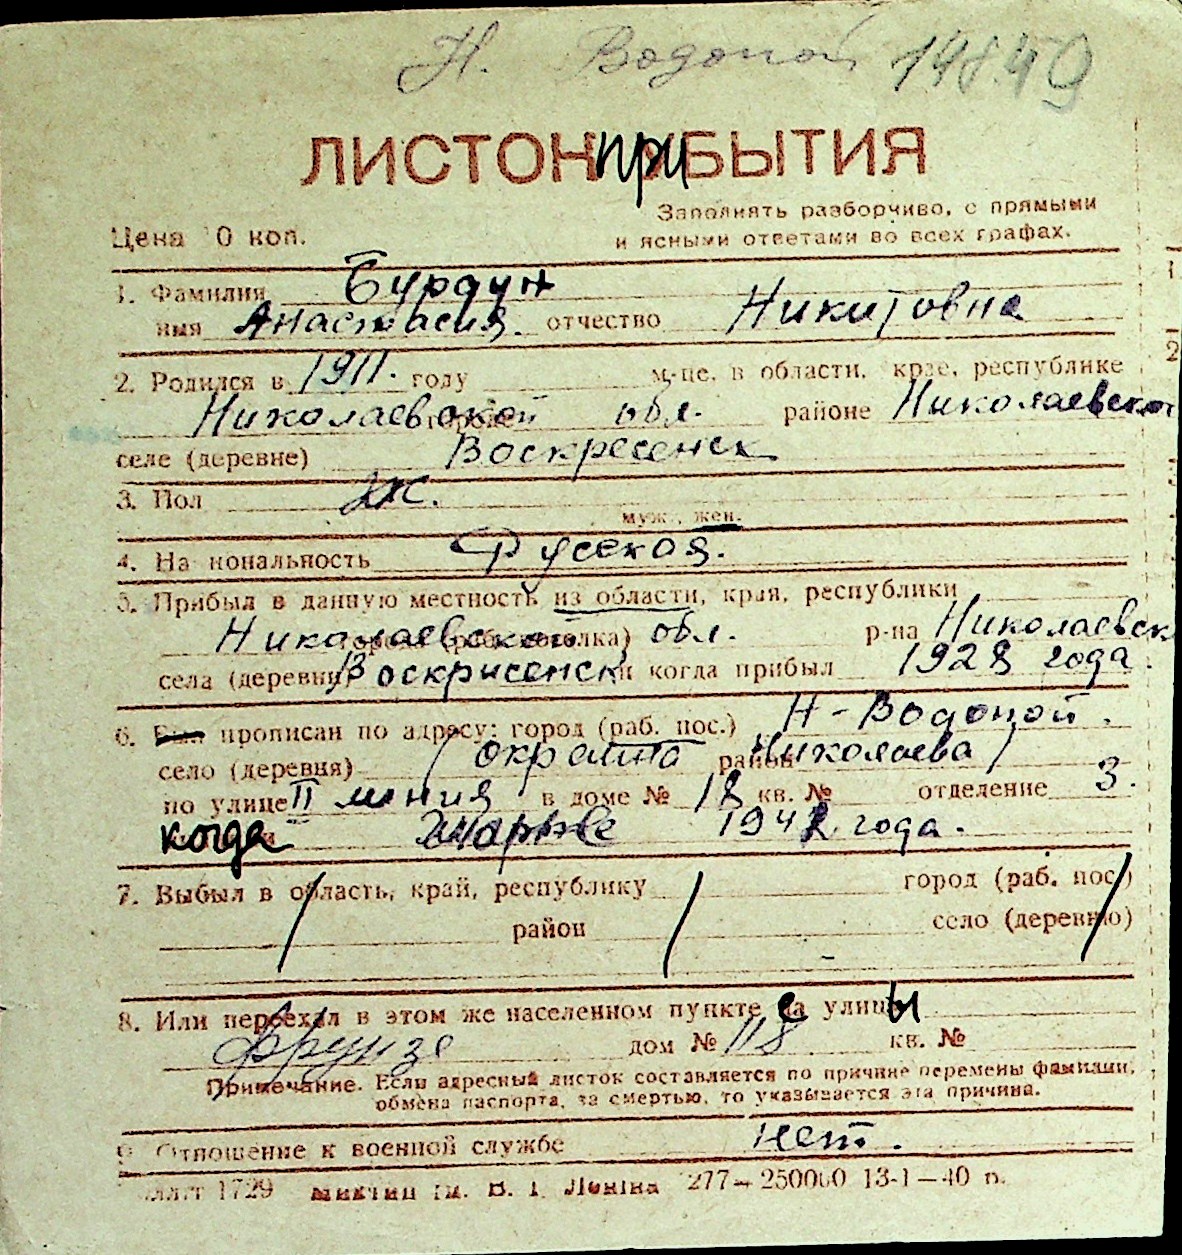 Н. Водопой 148.49
ЛИСТОК ПРИБЫТИЯ
Заполнять разборчиво, с прямыми
Цена 0 коп. и ясными ответами во всех графах.
1. Фамилия Бурдун
имя Анастасия. отчество Никитовна
2. Родился в 1911. году м-це, в области, крае, республике
Николаевской обл. районе Николаевском
селе (деревне) Воскресенск
3. Пол Ж.
муж., жен.
4. На иональность Русская.
5. Прибыл в данную местность из области, края, республики
Николаевской обл. р-на Николаевск
села (деревни) Воскрисенск и когда прибыл 1928 года.
6. Был прописан по адресу: город (раб. пос.) Н-Водопой.
село (деревня) район Николаева)
по улице II линия в доме № 18 кв. № отделение 3.
когда 1942 года.
7. Выбыл в область, край, республику город (раб. пос.)
район село (деревню)
8. Или переехал в этом же населенном пункте с улицы
Фрунзе дом № 118 кв. №
Примечание. Если адресный листок составляется по причине перемены фамилии,
обмена паспорта, за смертью, то указывается эта причина.
9. Отношение к военной службе нет.
1729 им. В. І. Леніна 277—250000 13-1—40 р.